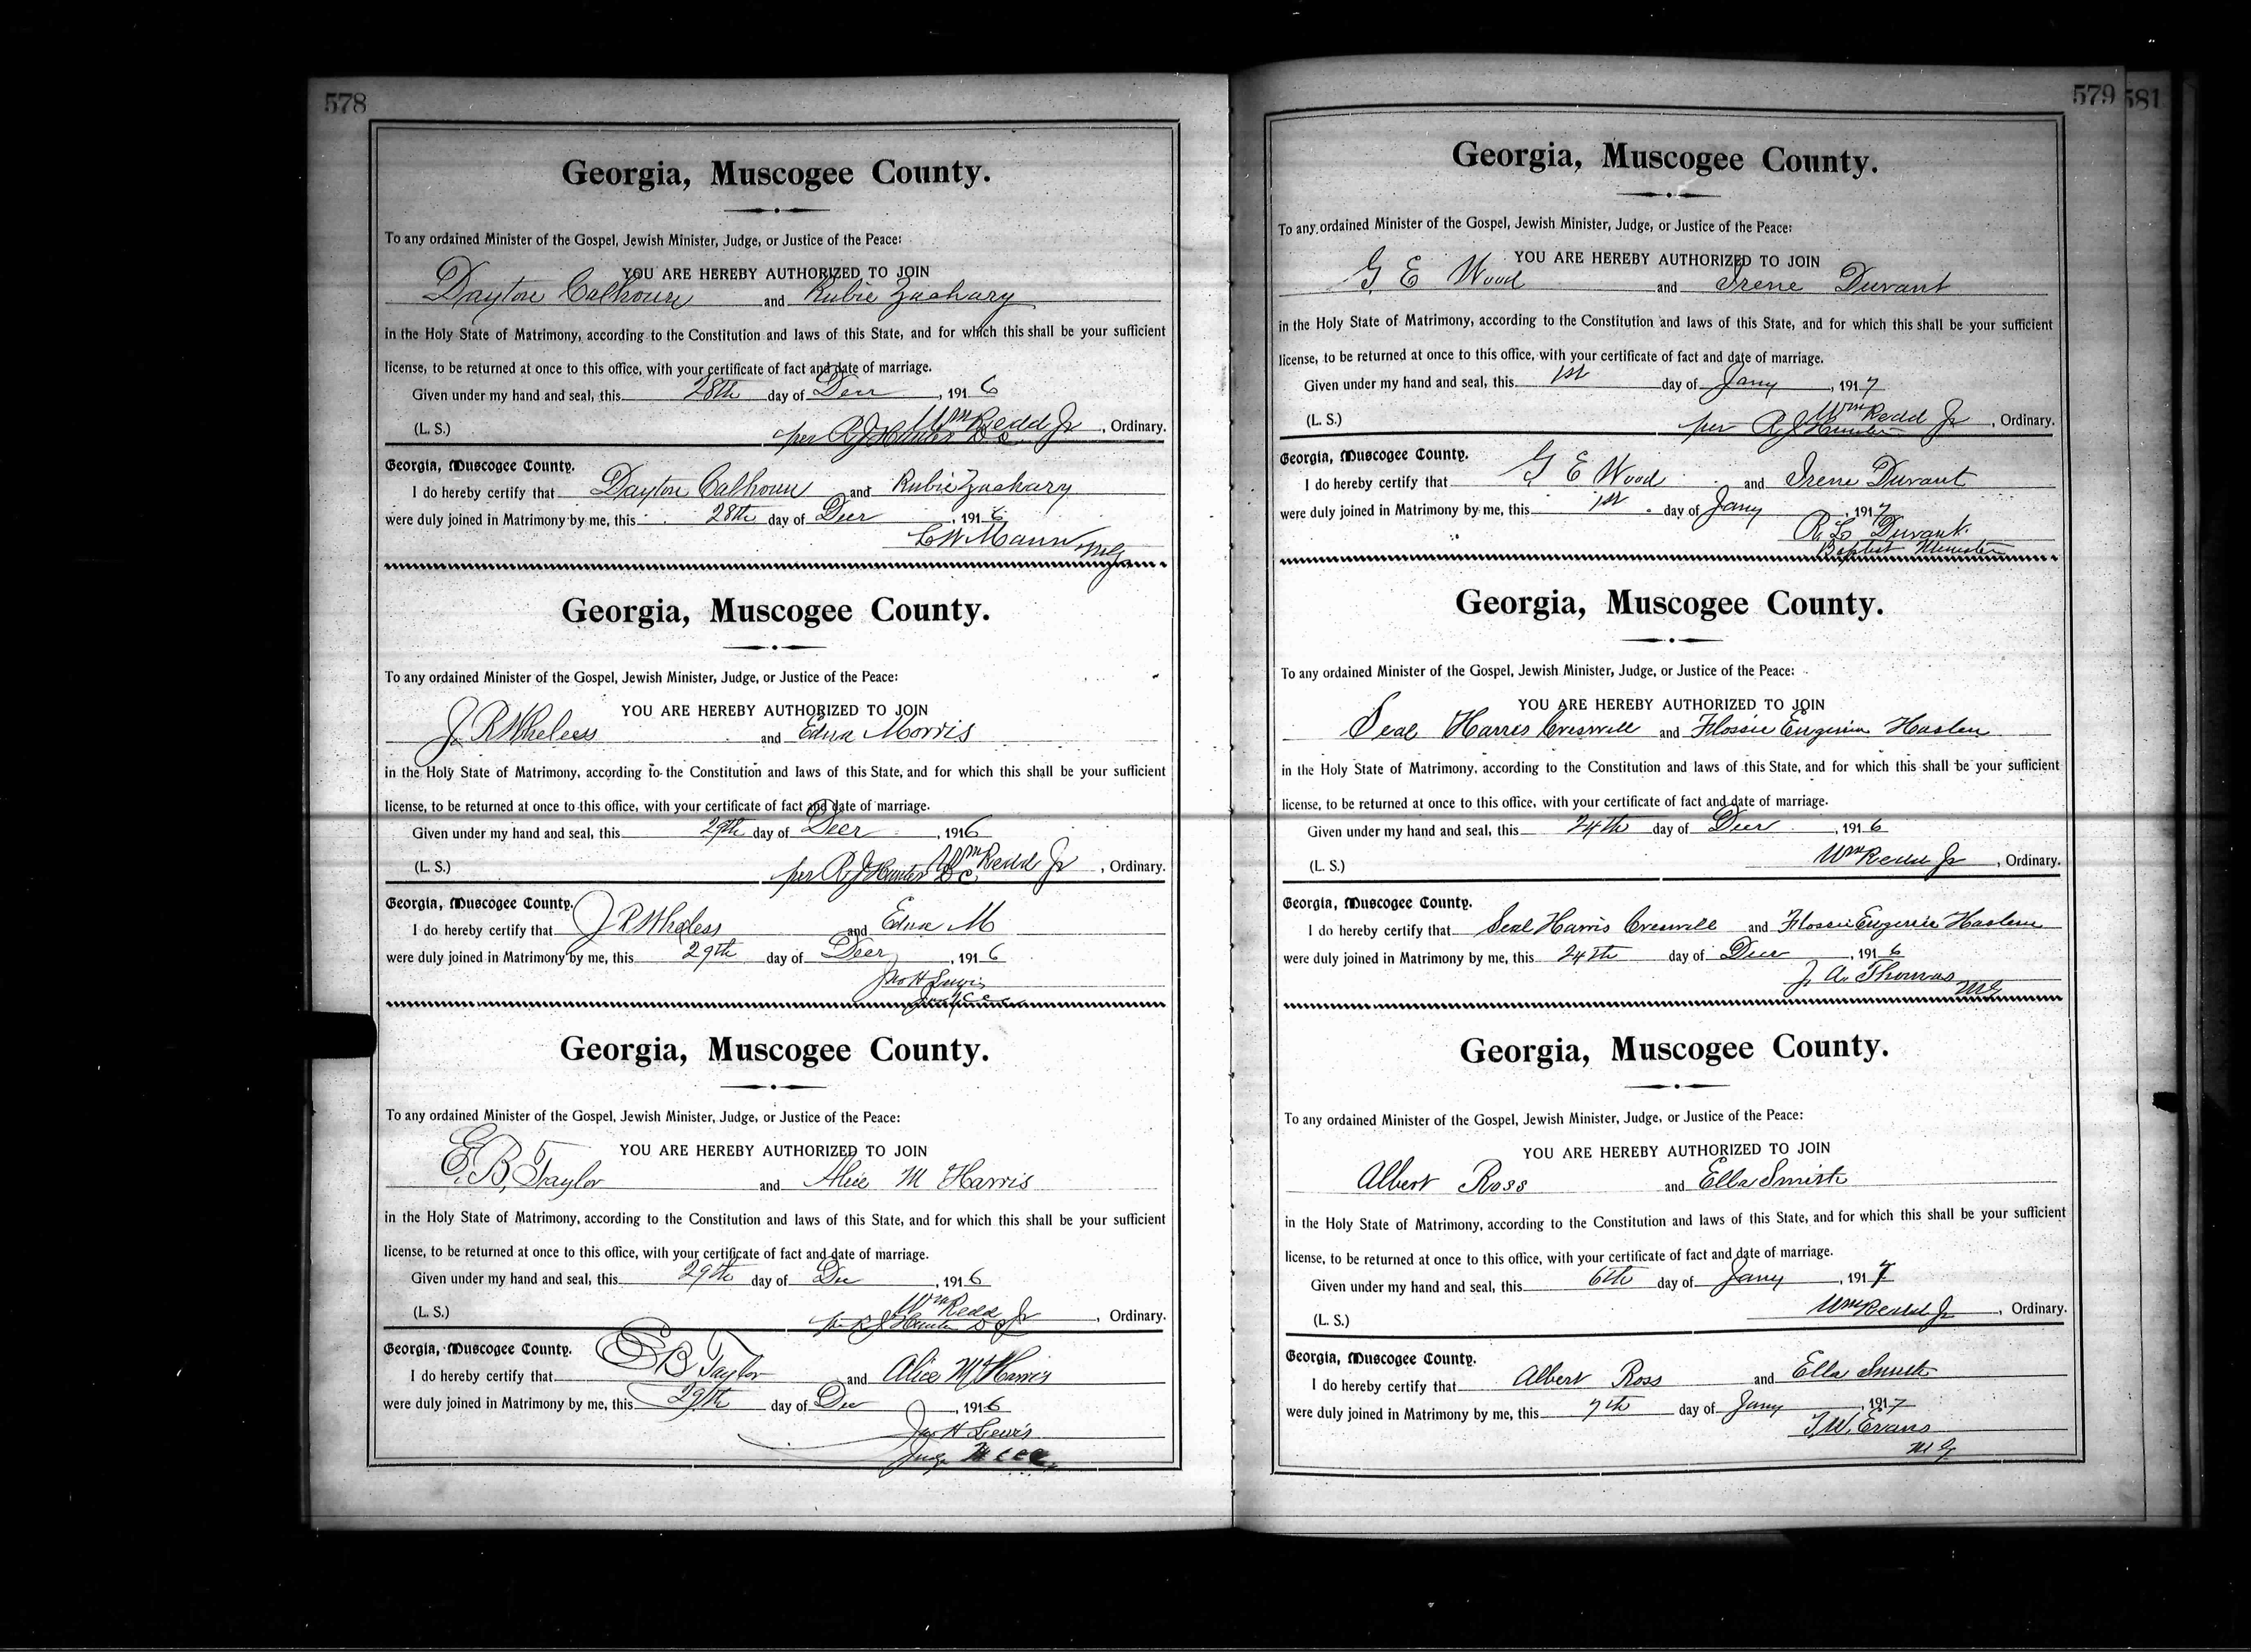 578
Georgia, Muscogee County.
To any ordained Minister of the Gospel, Jewish Minister, Judge, or Justice of the Peace:
YOU ARE HEREBY AUTHORIZED TO JOIN
Dayton Calhoun and Rubie Zachary
in the Holy State of Matrimony, according to the Constitution and laws of this State, and for which this shall be your sufficient
license, to be returned at once to this office, with your certificate of fact and date of marriage.
Given under my hand and seal, this 28th day of Decr, 1916
Wm Redd Jr
(L. S.) per R J Hunter D C, Ordinary.
Georgia, Muscogee County.
I do hereby certify that Dayton Calhoun and Rubie Zachary
were duly joined in Matrimony by me, this 28th day of Decr, 1916
C W Mann MG
Georgia, Muscogee County.
To any ordained Minister of the Gospel, Jewish Minister, Judge, or Justice of the Peace:
YOU ARE HEREBY AUTHORIZED TO JOIN
J. R Wheless and Edna Morris
in the Holy State of Matrimony, according to the Constitution and laws of this State, and for which this shall be your sufficient
license, to be returned at once to this office, with your certificate of fact and date of marriage.
Given under my hand and seal, this 29th day of Decr, 1916
Wm Redd Jr
(L. S.) per R J Hunter D C, Ordinary.
Georgia, Muscogee County.
I do hereby certify that J R Wheless and Edna M
were duly joined in Matrimony by me, this 29th day of Decr, 1916
Jno H Lewis
Georgia, Muscogee County.
To any ordained Minister of the Gospel, Jewish Minister, Judge, or Justice of the Peace:
YOU ARE HEREBY AUTHORIZED TO JOIN
E. B. Taylor and Alice M Harris
in the Holy State of Matrimony, according to the Constitution and laws of this State, and for which this shall be your sufficient
license, to be returned at once to this office, with your certificate of fact and date of marriage.
Given under my hand and seal, this 29th day of Dec, 1916
Wm Redd Jr
(L. S.) per R J Hunter D C, Ordinary.
Georgia, Muscogee County.
I do hereby certify that E B Taylor and Alice M Harris
were duly joined in Matrimony by me, this 29th day of Dec, 1916
Jno H Lewis
Judge
579 581
Georgia, Muscogee County.
To any ordained Minister of the Gospel, Jewish Minister, Judge, or Justice of the Peace:
YOU ARE HEREBY AUTHORIZED TO JOIN
G. E Wood and Irene Duvant
in the Holy State of Matrimony, according to the Constitution and laws of this State, and for which this shall be your sufficient
license, to be returned at once to this office, with your certificate of fact and date of marriage.
Given under my hand and seal, this 1st day of Jany, 1917
Wm Redd Jr
(L. S.) per R J Hunter, Ordinary.
Georgia, Muscogee County.
I do hereby certify that G E Wood and Irene Duvant
were duly joined in Matrimony by me, this 1st day of Jany, 1917
R. L Duvant.
Baptist Minister
Georgia, Muscogee County.
To any ordained Minister of the Gospel, Jewish Minister, Judge, or Justice of the Peace:
YOU ARE HEREBY AUTHORIZED TO JOIN
Seal Harris Creswell and Flossie Eugenia Haslem
in the Holy State of Matrimony, according to the Constitution and laws of this State, and for which this shall be your sufficient
license, to be returned at once to this office, with your certificate of fact and date of marriage.
Given under my hand and seal, this 24th day of Decr, 1916
(L. S.) Wm Redd Jr, Ordinary.
Georgia, Muscogee County.
I do hereby certify that Seal Harris Creswell and Flossie Eugenia Haslem
were duly joined in Matrimony by me, this 24th day of Decr, 1916
J. A. Thomas
MG
Georgia, Muscogee County.
To any ordained Minister of the Gospel, Jewish Minister, Judge, or Justice of the Peace:
YOU ARE HEREBY AUTHORIZED TO JOIN
Albert Ross and Ella Smith
in the Holy State of Matrimony, according to the Constitution and laws of this State, and for which this shall be your sufficient
license, to be returned at once to this office, with your certificate of fact and date of marriage.
Given under my hand and seal, this 6th day of Jany, 1917
(L. S.) Wm Redd Jr, Ordinary.
Georgia, Muscogee County.
I do hereby certify that Albert Ross and Ella Smith
were duly joined in Matrimony by me, this 7th day of Jany, 1917
T. W. Evans
MG